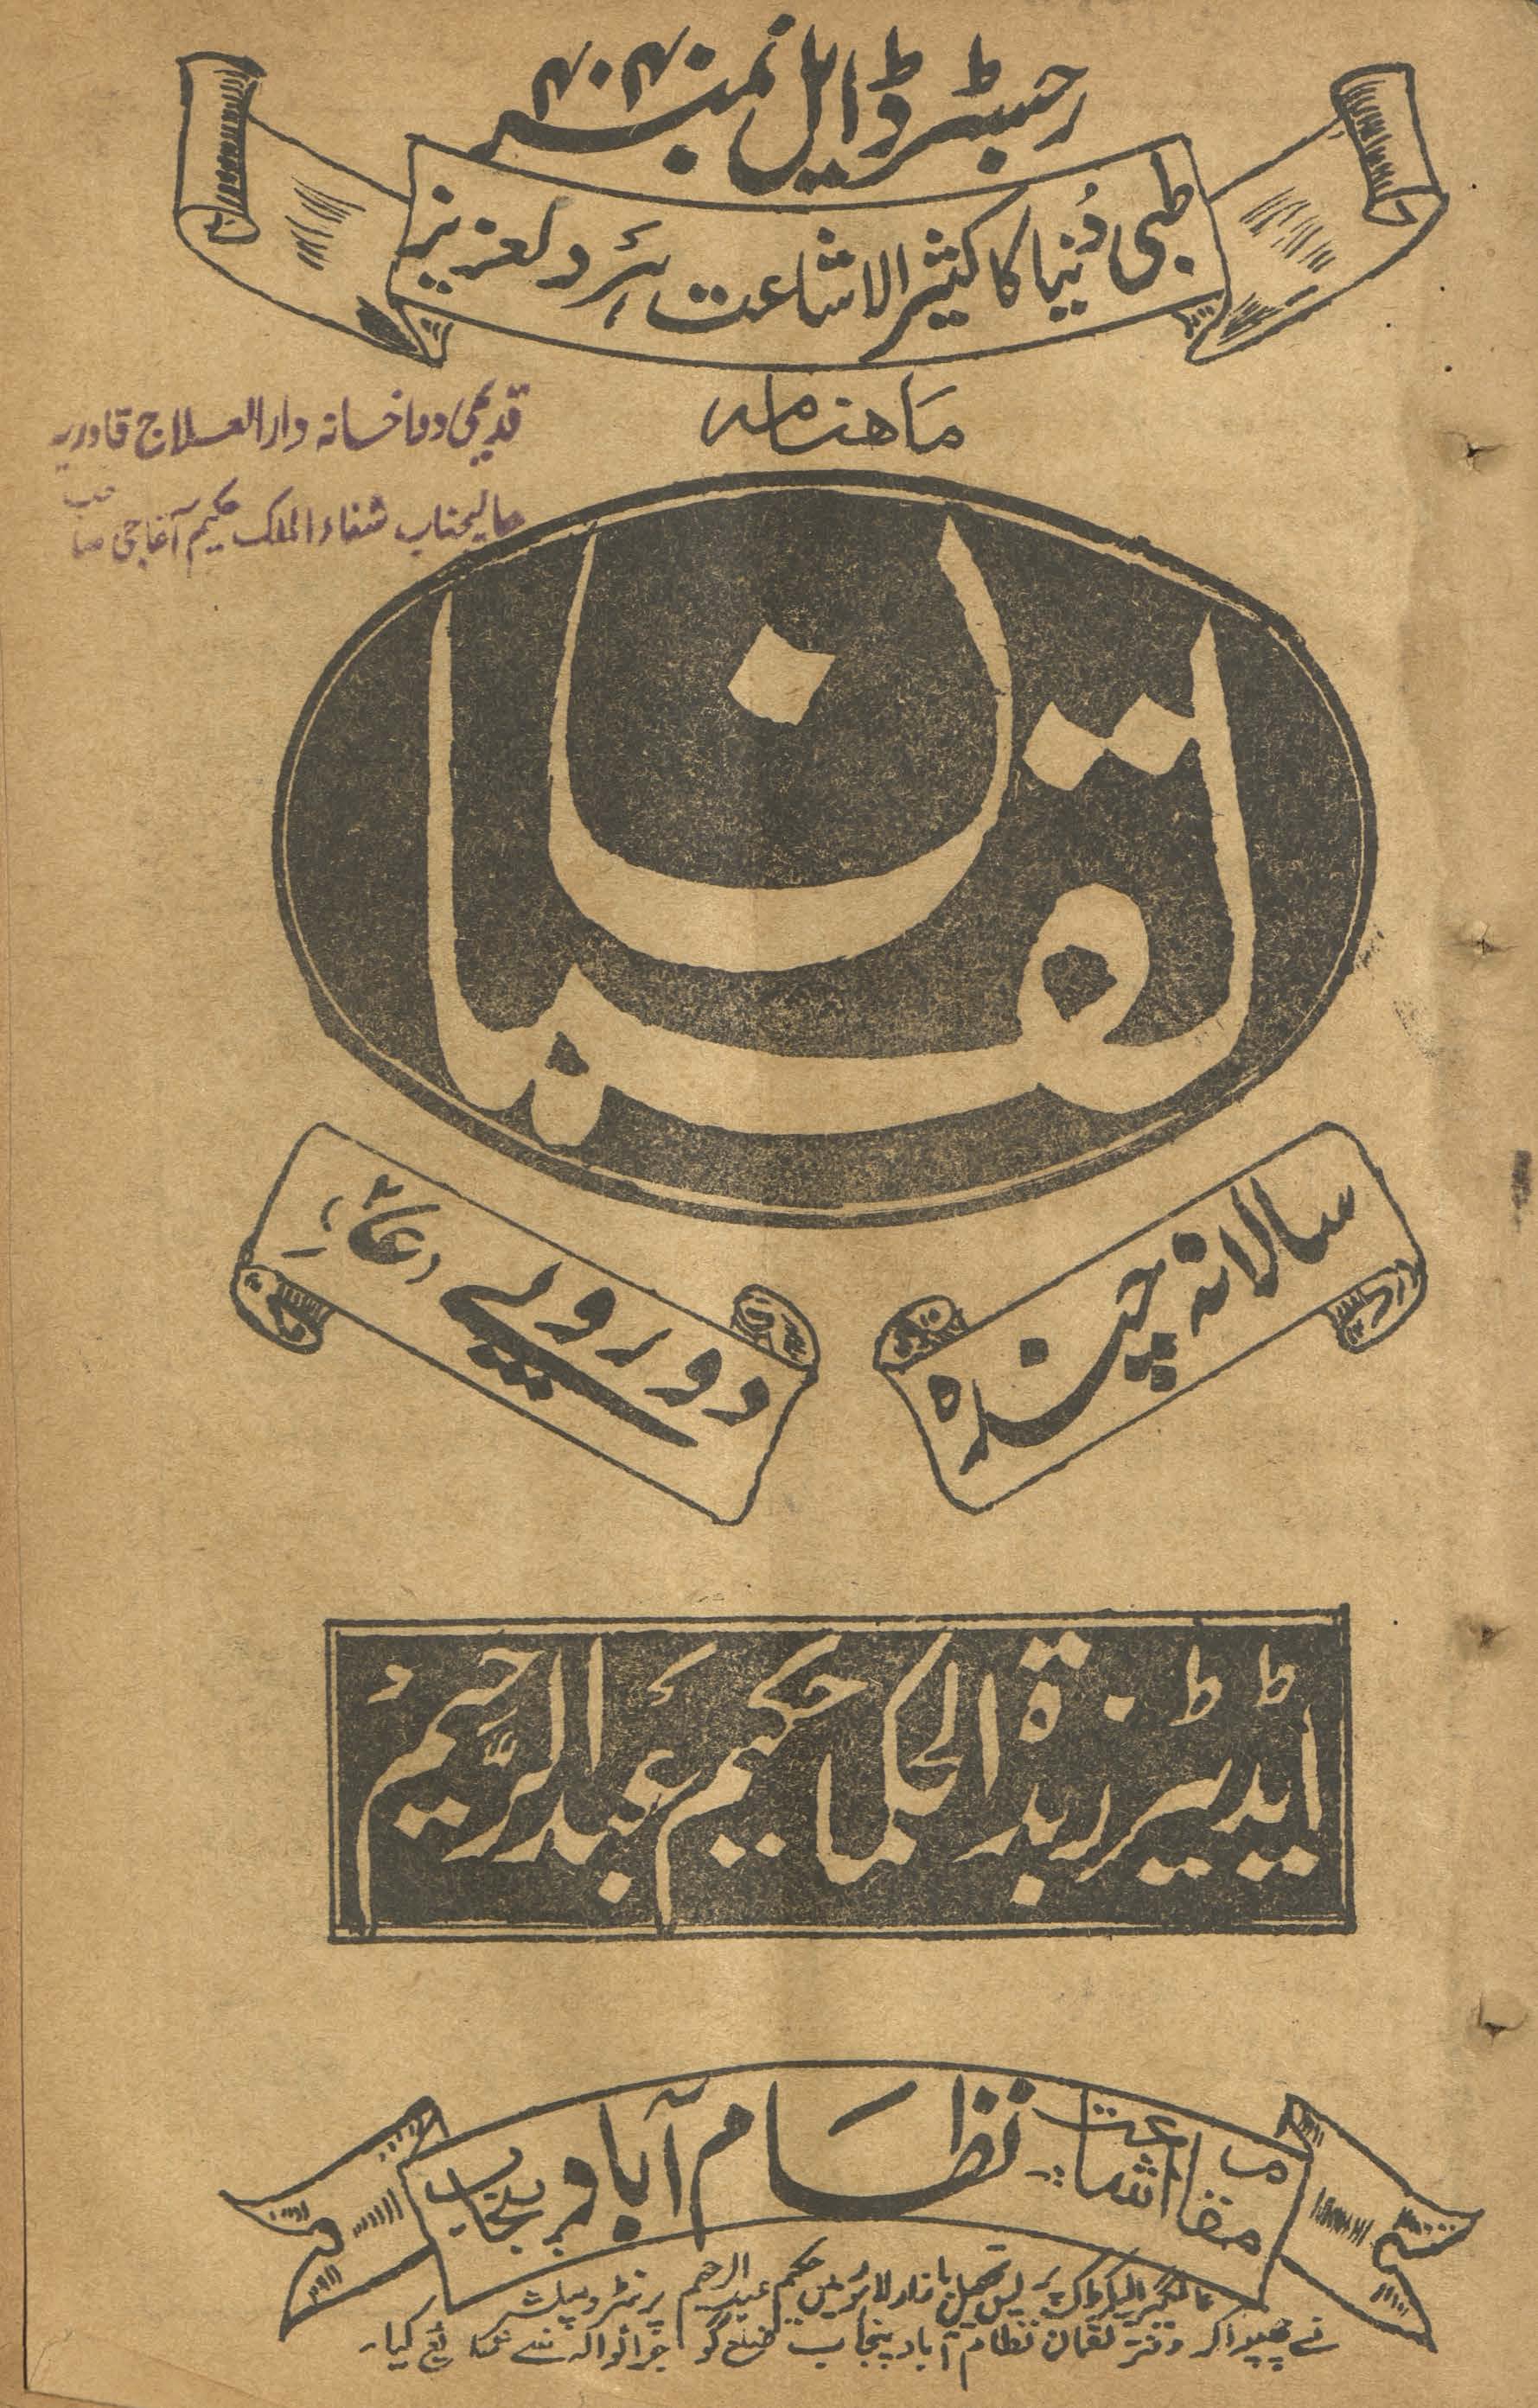 رجسٹرڈ ایل نمبر ۴۰۴۰
طبی دُنیا کا کثیر الاشاعت ہَر دلعزیز
مَاھنامہ
قدیمی دواخانہ دارالعلاج قادریہ
عالیجناب شفاء الملک حکیم آغاجی صاحب
لقمان
سالانہ چندہ
دو روپے
ایڈیٹر زبدۃ الحکما حکیم عبد الرحیم
مقام اشاعت نظام آباد پنجاب
عالمگیر الیکٹرک پریس بازار لاہور میں حکیم عبدالرحیم پرنٹر و پبلشر
نے چھپوا کر دفتر لقمان نظام آباد پنجاب ضلع گوجرانوالہ سے شائع کیا۔